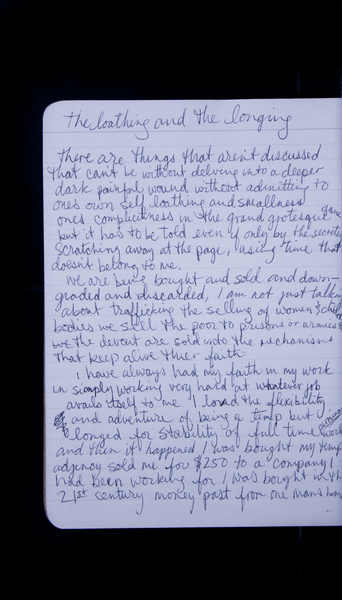 The loathing and the longing
There are things that aren't discussed
that cant be without delving into a deeper
dark painful wound without admitting to
ones own self loathing and smallness
ones complicitness in the grand grotesquit game
but it has to be told even if only by the secrets
scratching away at the page, using time that
doesn't belong to me.
We are being bought and sold and down-
graded and discarded, I am not just talking
about trafficking the selling of women & child
bodies we sell the poor to prisons or armies &
we the devout are sold into the mechanisms
that keep alive thier faith.
I have always had my faith in my work
in simply working very hard at whatever job
avails itself to me I loved the flexibility
and adventure of being a temp but
longed for stability of full time work
and then it happened I was bought my temp
adgency sold me for $250 to a company I
had been working for I was bought in th
21st century money past from one mans han